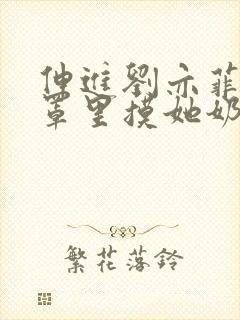 伸进劉亦菲
罩里摸她奶
繁花落鈴